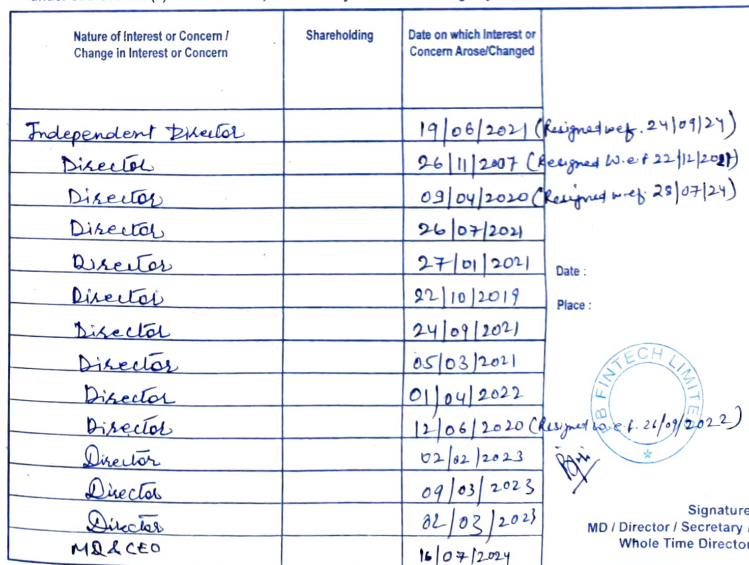 Nature of Interest or Concern / Change in Interest or Concern
Shareholding
Date on which Interest or Concern Arose/Changed
Independent Director 19/06/2021 (Resigned wef. 24/09/24)
Director 26/11/2007 (Resigned W.e.f 22/12/
Director 09/04/2020 (Resigned w.e.f. 28/07/24)
Director 26/07/2021
Director 27/01/2021
Date :
Director 22/10/2019
Place :
Director 24/09/2021
Director 05/03/2021
Director 01/04/2022
Director 12/06/2020 (Resigned w.e.f. 26/09/2022)
Director 02/02/2023
Director 09/03/2023
Director 02/03/2023
MD & CEO 16/07/2024
FINTECH LIMITE
Signature
MD / Director / Secretary /
Whole Time Director